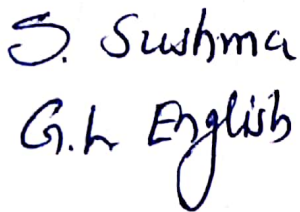 S. Sushma
G.L English